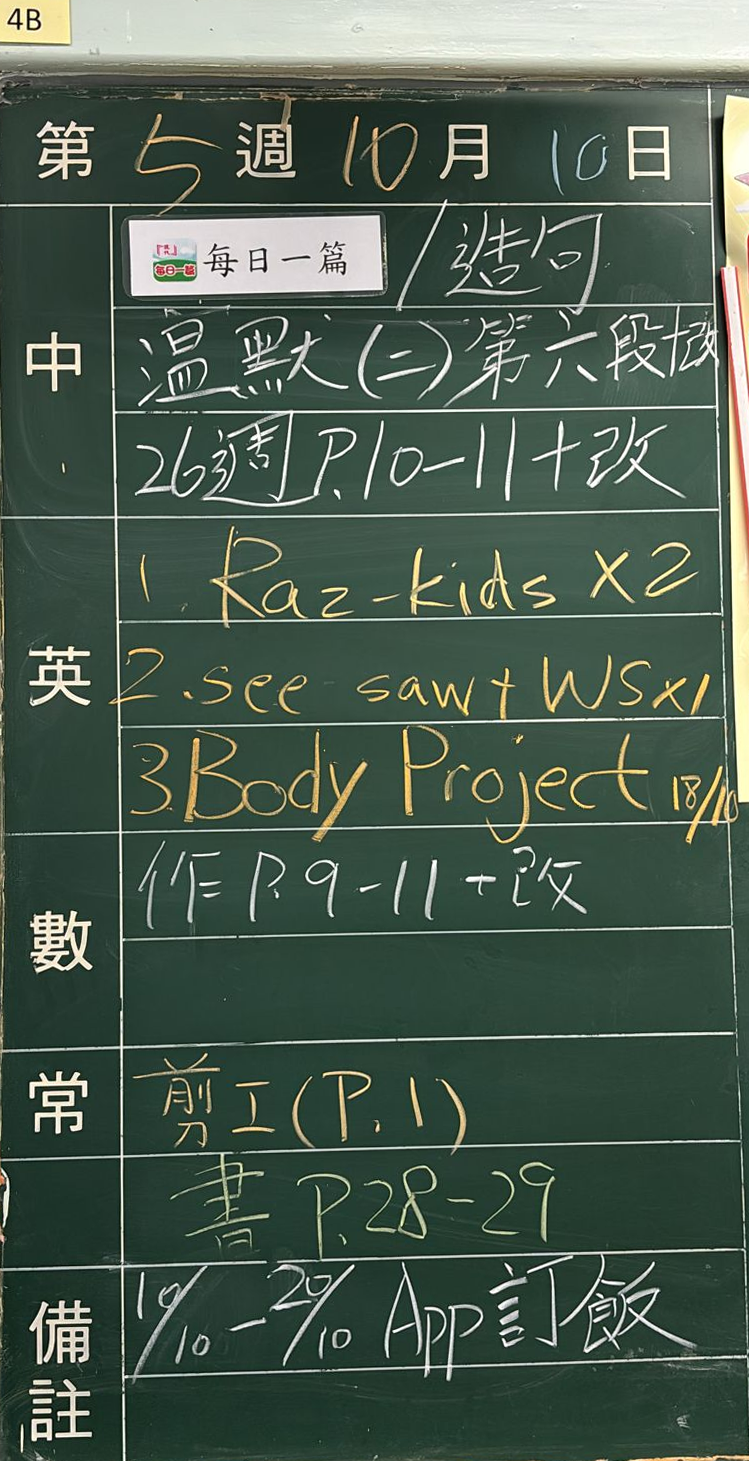 4B
第5週10月10日
每日一篇 每日一篇 /造句
中
溫默(二)第六段+改
26週P.10-11+改
英
1. Raz-kids X2
2. see saw + WS x1
3. Body Project 18/10
數
作P.9-11+改
常
剪工(P.1)
書 P.28-29
備註
10/10-20/10 App訂飯